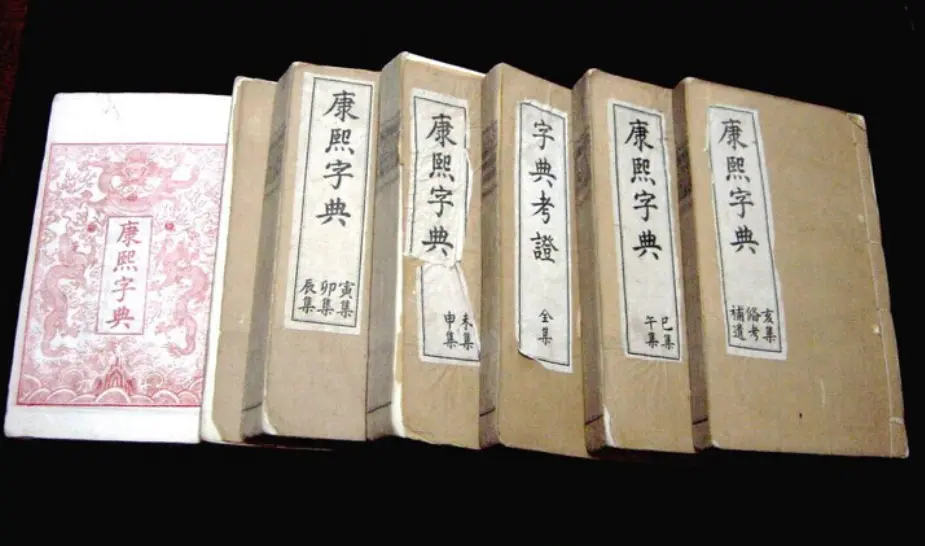 康熙字典
康熙字典
寅集
卯集
辰集
康熙字典
未集
申集
字典考證
全集
康熙字典
巳集
午集
康熙字典
亥集
俻考
補遺